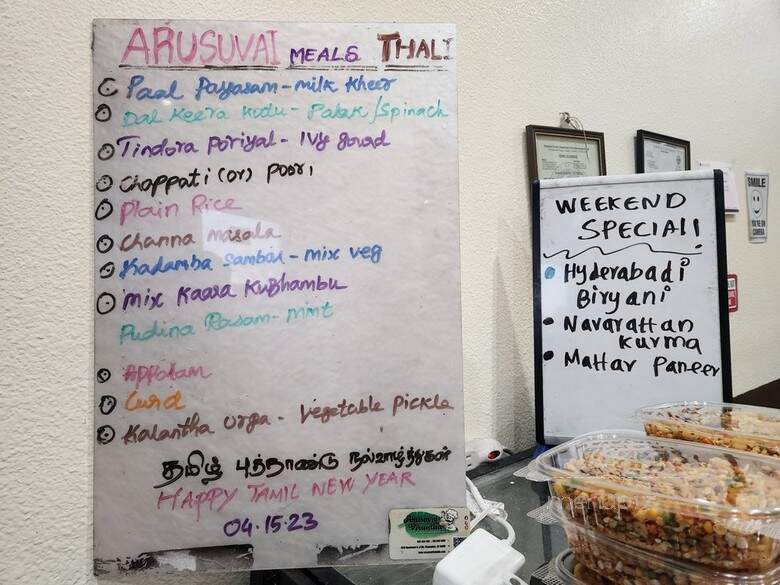 ARUSUVAI MEALS THALI
Paal Payasam - milk kheer
Dal Keera kodu - Palak/Spinach
Tindora Poriyal - Ivy gourd
Chappati (or) Poori
Plain Rice
Channa masala
Kadamba Sambar - mix veg
Mix Kaara Kuzhambu
Pudina Rasam - mint
Appalam
Curd
Kalantha urga - Vegetable Pickle
தமிழ் புத்தாண்டு நல்வாழ்த்துகள்
HAPPY TAMIL NEW YEAR
04.15.23
WEEKEND
SPECIAL!
Hyderabadi
Biryani
Navarattan
kurma
Mattar Paneer
SMILE